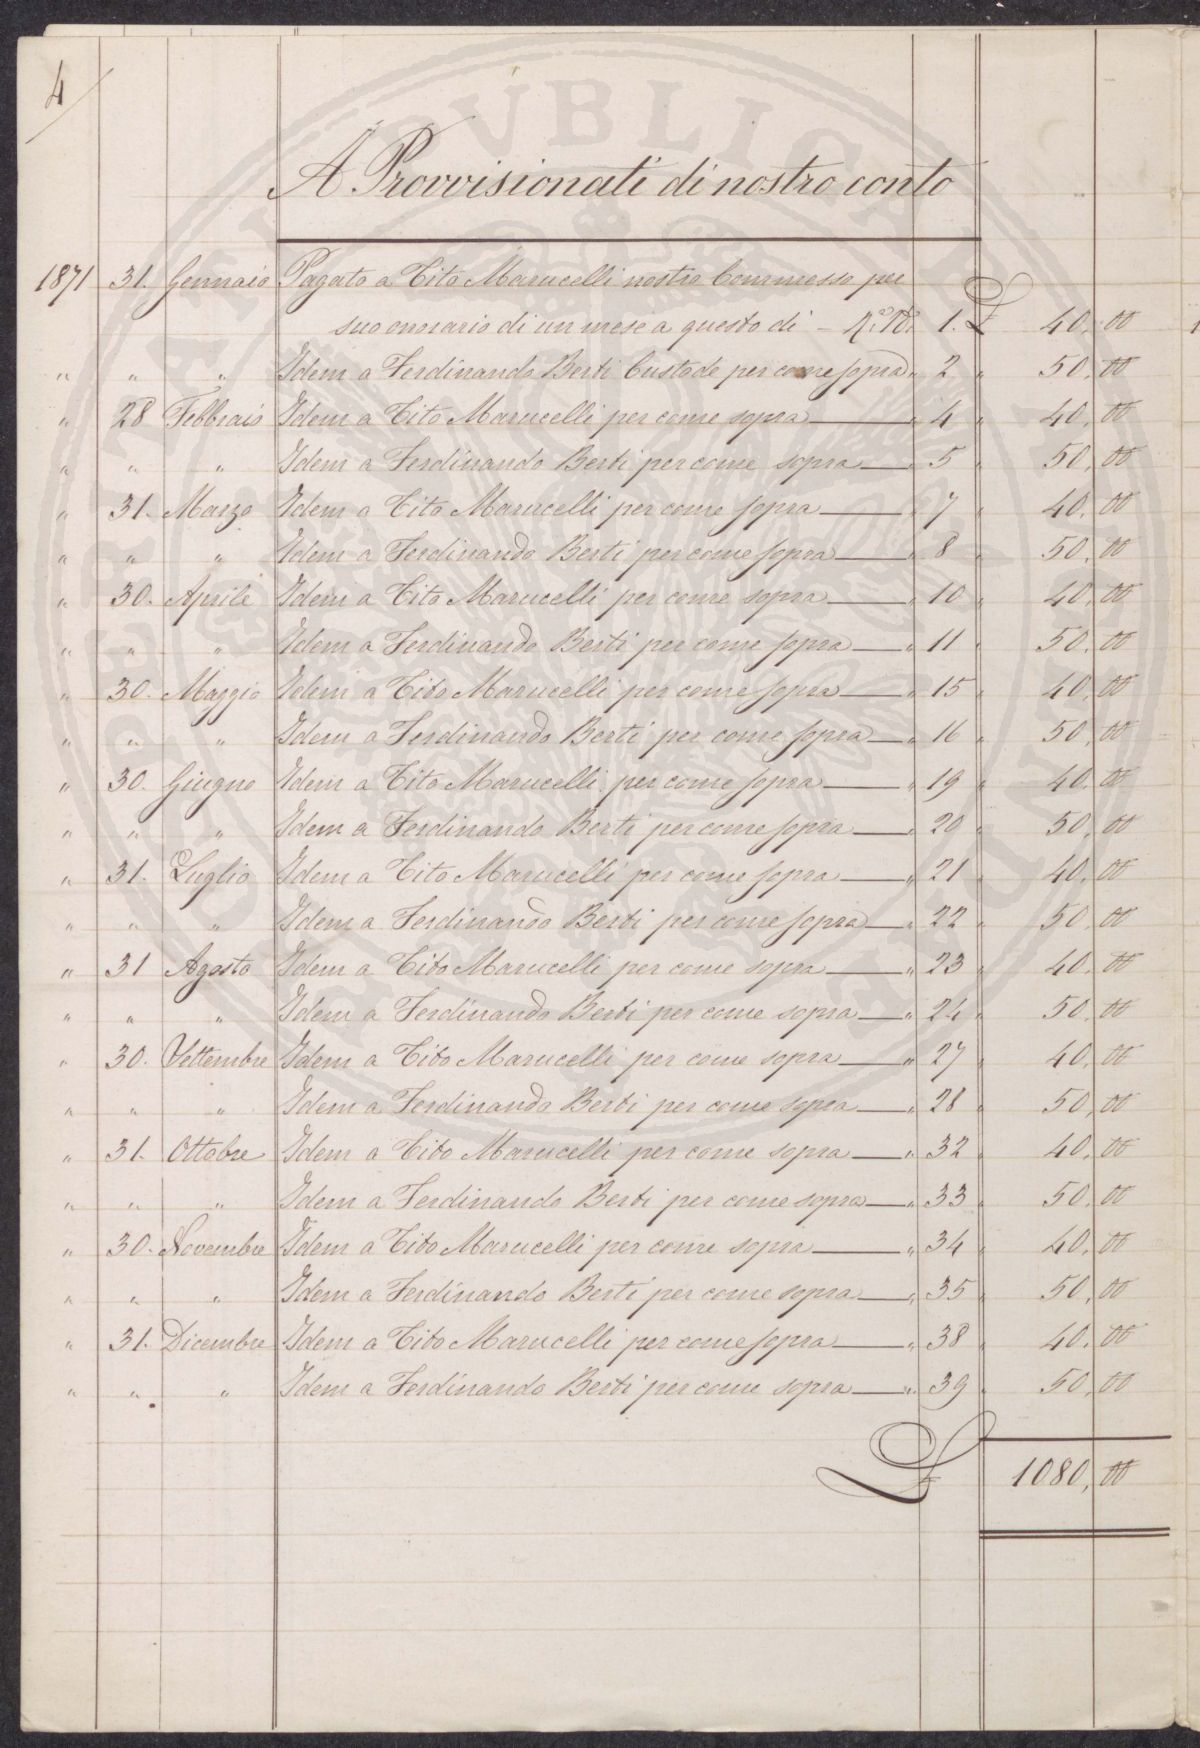 4
A Provvisionati di nostro conto
1871 31. Gennaio Pagato a Tito Marucelli nostro Commesso per
suo onorario di un mese a questo dì - 1. £ 40,00
" " " Idem a Ferdinando Berti Custode per come sopra " 2 " 50,00
" 28 Febbraio Idem a Tito Marucelli per come sopra " 4 " 40,00
" " " Idem a Ferdinando Berti per come sopra " 5 " 50,00
" 31. Marzo Idem a Tito Marucelli per come sopra " 7 " 40,00
" " " Idem a Ferdinando Berti per come sopra " 8 " 50,00
" 30. Aprile Idem a Tito Marucelli per come sopra " 10 " 40,00
" " " Idem a Ferdinando Berti per come sopra " 11 " 50,00
" 30. Maggio Idem a Tito Marucelli per come sopra " 15 " 40,00
" " " Idem a Ferdinando Berti per come sopra " 16 " 50,00
" 30. Giugno Idem a Tito Marucelli per come sopra " 19 " 40,00
" " " Idem a Ferdinando Berti per come sopra " 20 " 50,00
" 31. Luglio Idem a Tito Marucelli per come sopra " 21 " 40,00
" " " Idem a Ferdinando Berti per come sopra " 22 " 50,00
" 31 Agosto Idem a Tito Marucelli per come sopra " 23 " 40,00
" " " Idem a Ferdinando Berti per come sopra " 24 " 50,00
" 30. Settembre Idem a Tito Marucelli per come sopra " 27 " 40,00
" " " Idem a Ferdinando Berti per come sopra " 28 " 50,00
" 31. Ottobre Idem a Tito Marucelli per come sopra " 32 " 40,00
" " " Idem a Ferdinando Berti per come sopra " 33 " 50,00
" 30. Novembre Idem a Tito Marucelli per come sopra " 34 " 40,00
" " " Idem a Ferdinando Berti per come sopra " 35 " 50,00
" 31. Dicembre Idem a Tito Marucelli per come sopra " 38 " 40,00
" " " Idem a Ferdinando Berti per come sopra " 39 " 50,00
£ 1080,00